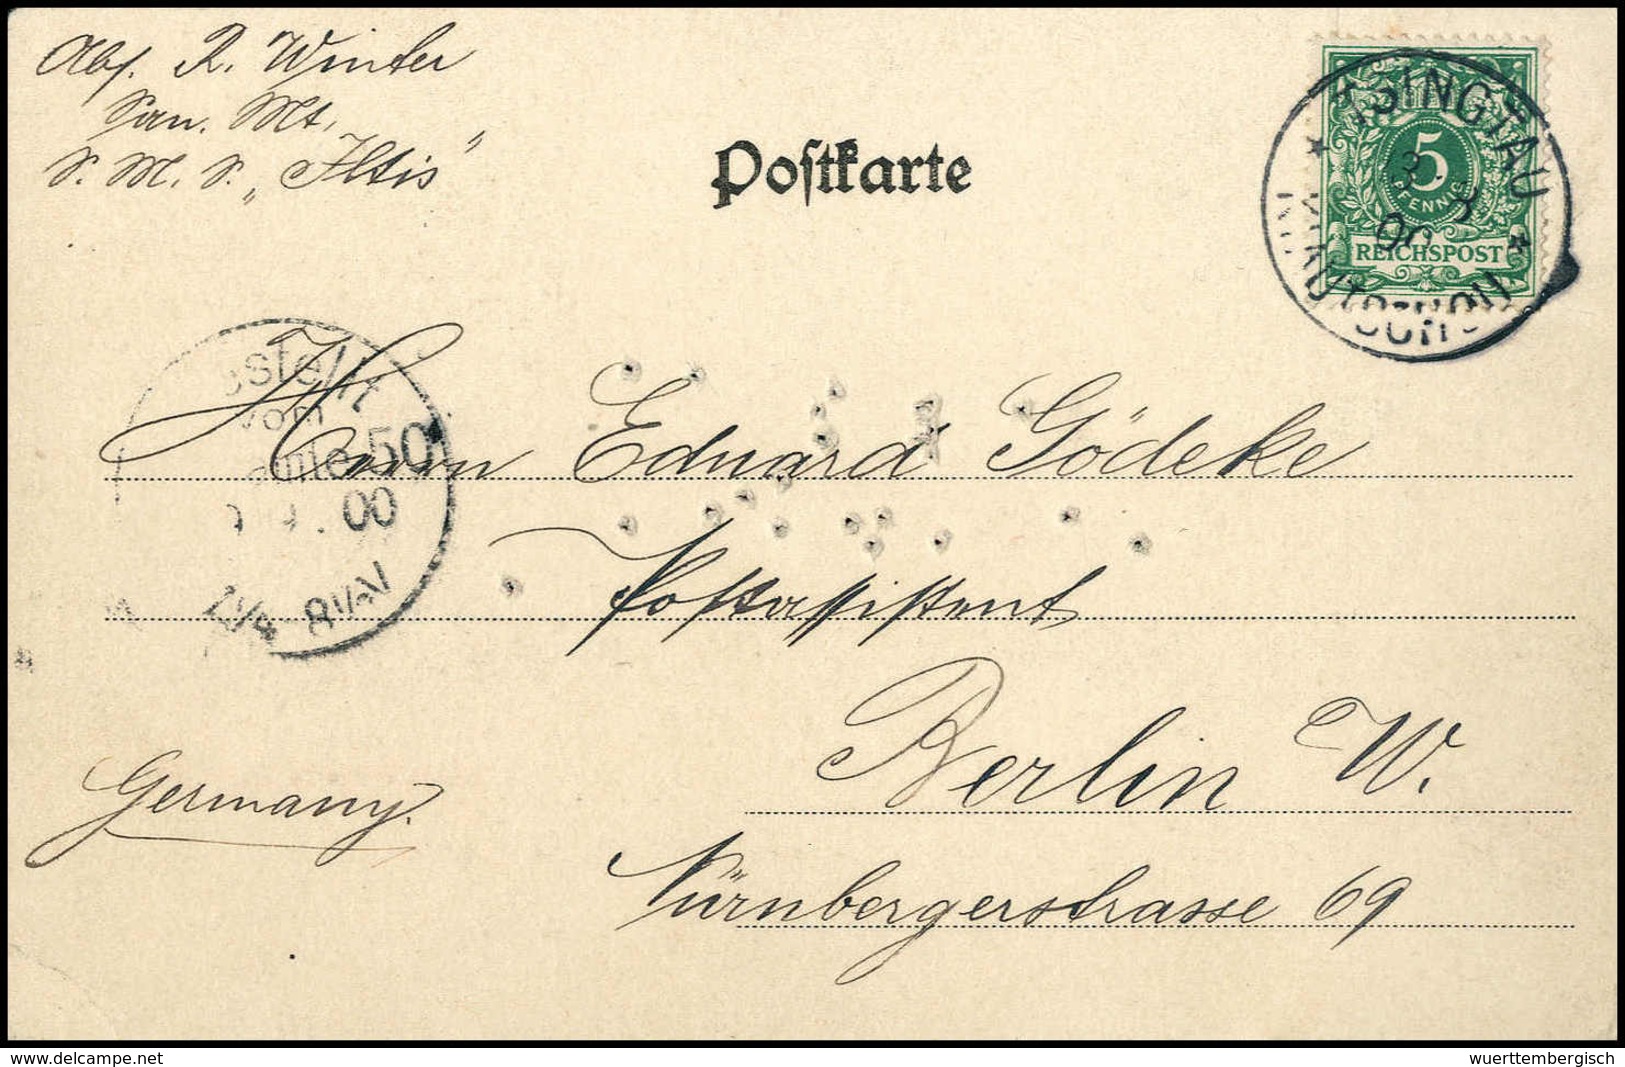 Abs. R. Winter
San. Mt.
S. M. S. „Iltis"
Postkarte
TSINGTAU
3.
3
00
KIAUTSCHOU
5
PFENNIG
REICHSPOST
Bestellt
vom
Postamte 50
00
8¼-9¼V
Herrn Eduard Gödeke
Postassistent
Berlin W.
Germany.
Nürnbergerstrasse 69
www.delcampe.net
wuerttembergisch